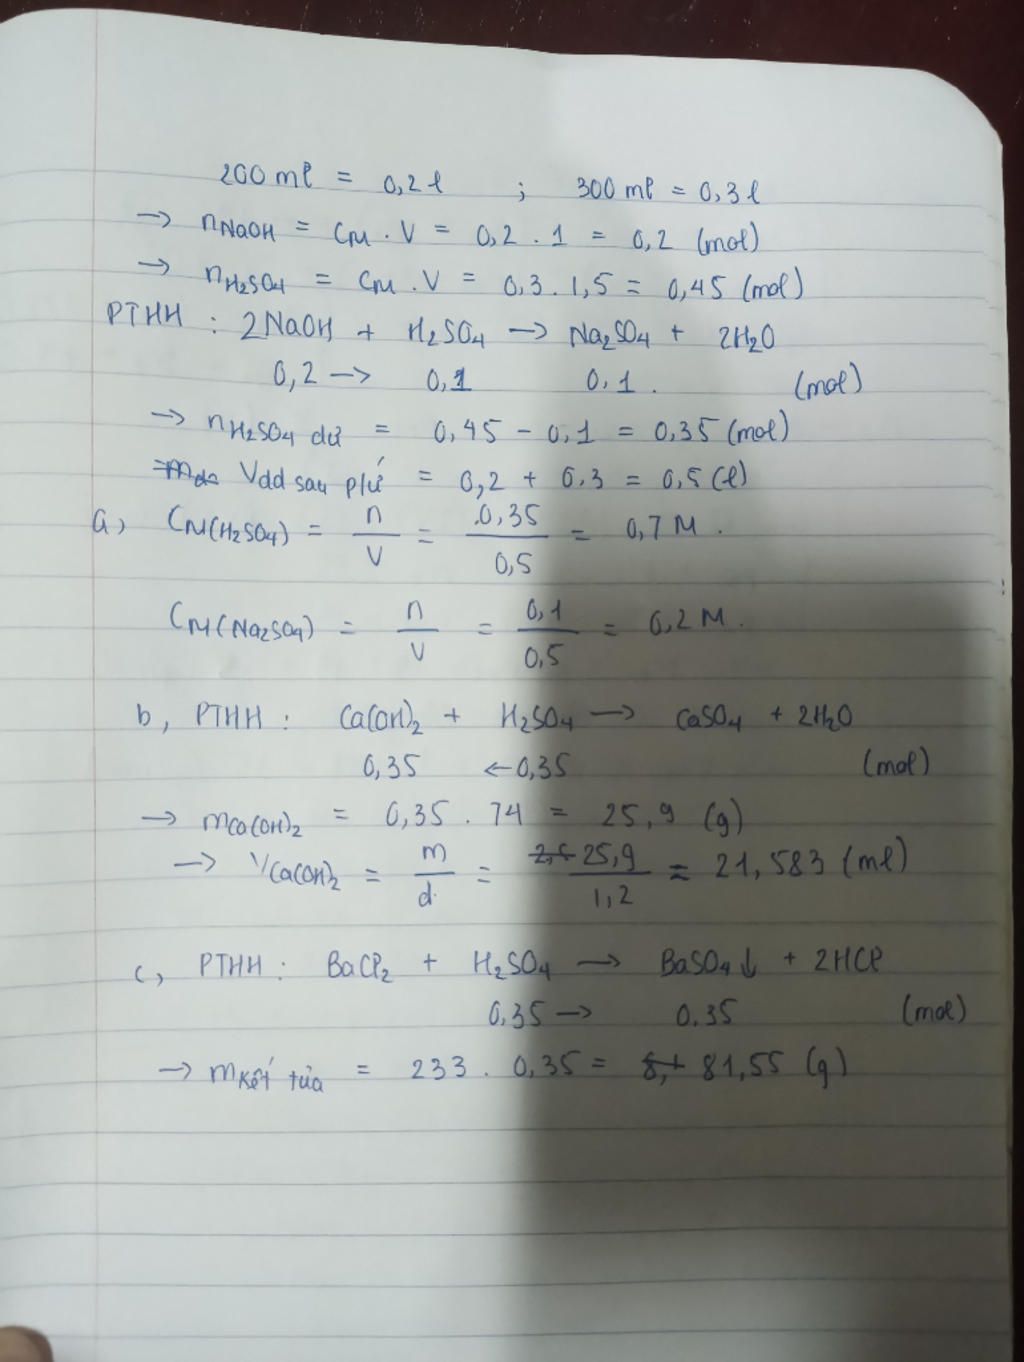 200 ml = 0,2 l ; 300 ml = 0,3 l
→ nNaOH = CM . V = 0,2 . 1 = 0,2 (mol)
→ nH2SO4 = CM . V = 0,3 . 1,5 = 0,45 (mol)
PTHH : 2NaOH + H2SO4 → Na2SO4 + 2H2O
0,2 → 0,1 0,1 . (mol)
→ nH2SO4 dư = 0,45 - 0,1 = 0,35 (mol)
Vdd sau p/ứ = 0,2 + 0,3 = 0,5 (l)
a, CM(H2SO4) = n/V = 0,35/0,5 = 0,7 M .
CM(Na2SO4) = n/V = 0,1/0,5 = 0,2 M .
b, PTHH : Ca(OH)2 + H2SO4 → CaSO4 + 2H2O
0,35 ← 0,35 (mol)
→ mCa(OH)2 = 0,35 . 74 = 25,9 (g)
→ VCa(OH)2 = m/d = 25,9/1,2 ≈ 21,583 (ml)
c, PTHH : BaCl2 + H2SO4 → BaSO4↓ + 2HCl
0,35 → 0.35 (mol)
→ mkết tủa = 233 . 0,35 = 81,55 (g)